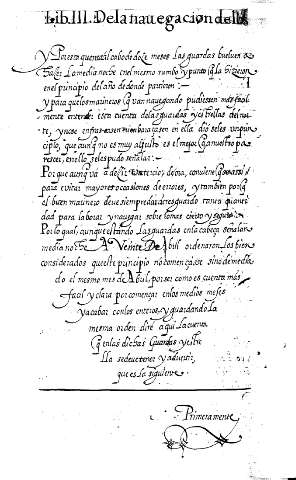 Lib. III. De la nauegacion del
Y Por esta quenta al cabo de doze meses Las guardas bueluen a
hazer La media noche en el mesmo rumbo y punto q̃ la hizieron
en el principio del año de donde partieron :—
Y para que los marineros q̃ van nauegando pudiesen mas facil
mente entender esta cuenta de las guardas y estrellas del nor
te, y no se enfadasen ni enborasasen en ella dio se les un prin
cipio, que aunq̃ no es muy a justo es el mejor q̃ a nuestro pa
recer, en ello se les pudo señalar :—
Por que aunq̃ va a dezir
para evitar mayores occasiones de errores, y tambien por q̃
al buen marinero deue siempre darse resguardo tanta quanti
dad para laborar y nauegar sobre lo mas cierto y seguro :—
Por lo qual, aunque estando Las guardas en la cabeça señalan
media noche A Veinte De Abril ordenaron, los bien
considerados que este principio no començasse sino de media
do el mesmo mes de Abril, por ser como es cuenta mas
facil y clara por començar en los medios meses
y acabar con los enteros, y guardando la
mesma orden dire aqui la cuenta
q̃ en las dichas Guardas y estre
lla se deue tener y aduertir,
que es la siguiente
Primeramente